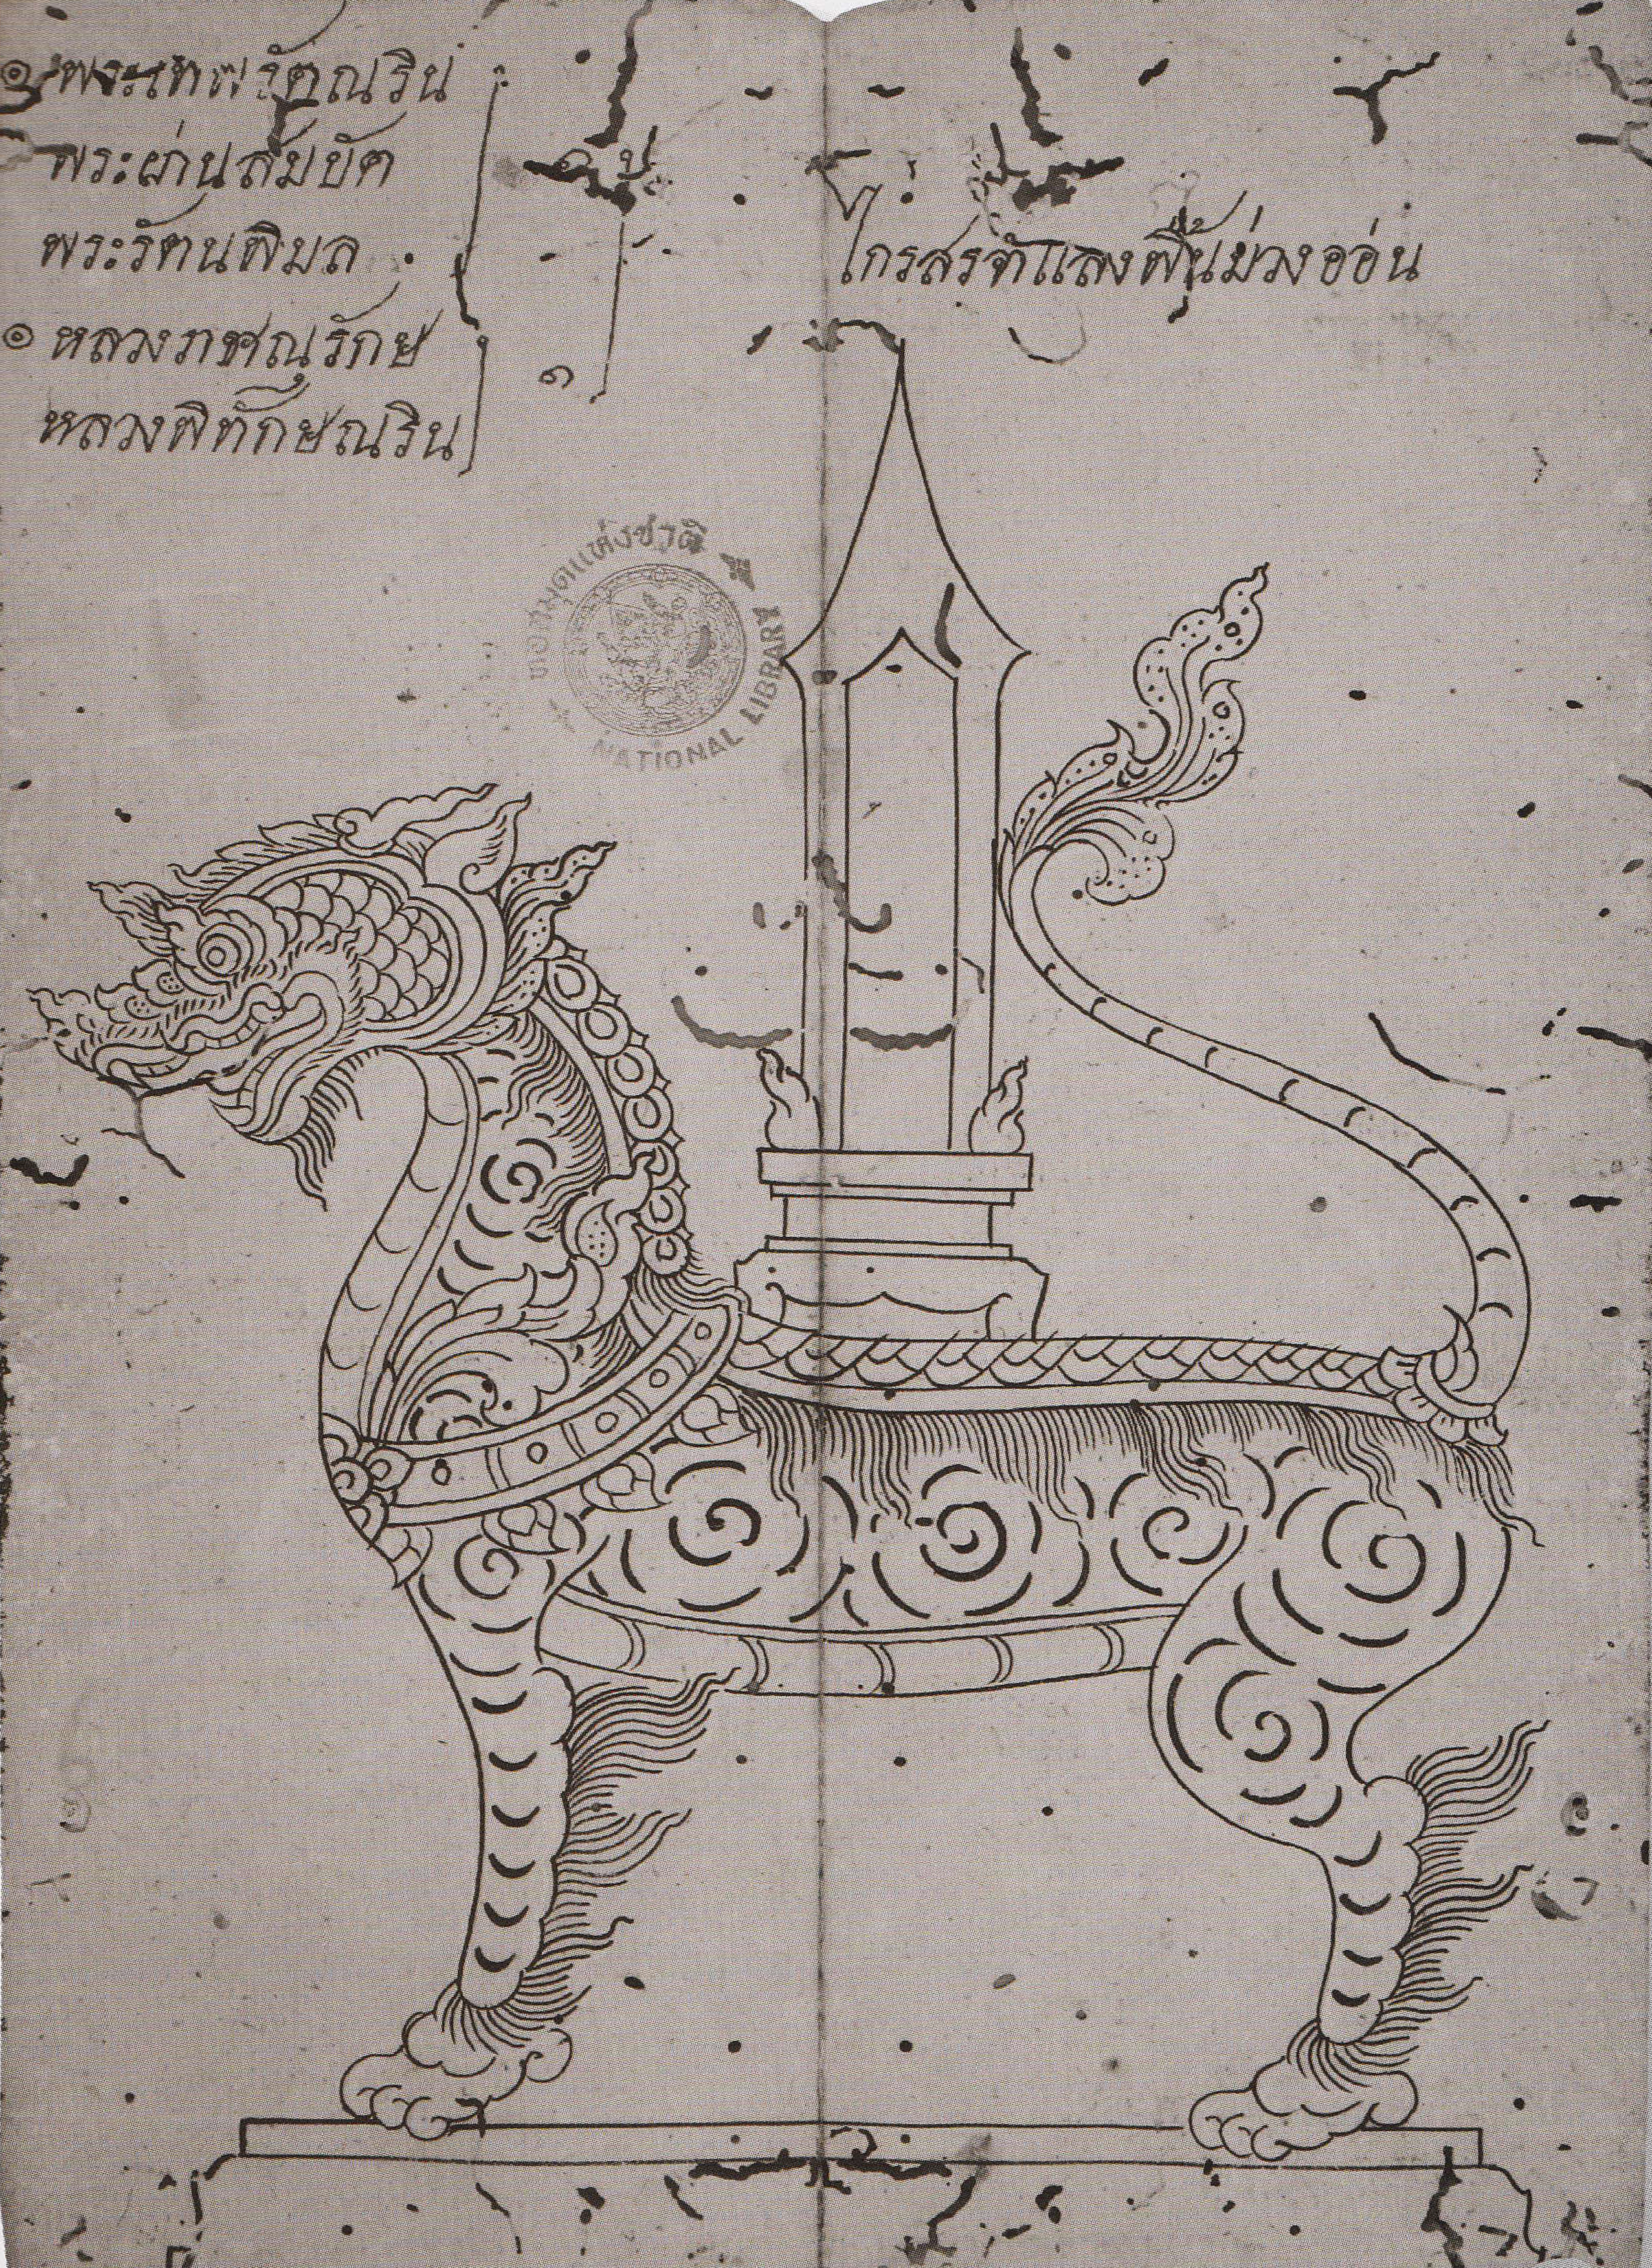 ๏ พระเทพรัตณริน
พระผ่านสมบัต
พระรัตนพิมล
๏ หลวงภาษณุรักษ
หลวงพิทักษณริน
ไกรสรจำแลงพื้นม่วงออ่น
หอสมุดแห่งชาติ
NATIONAL LIBRARY